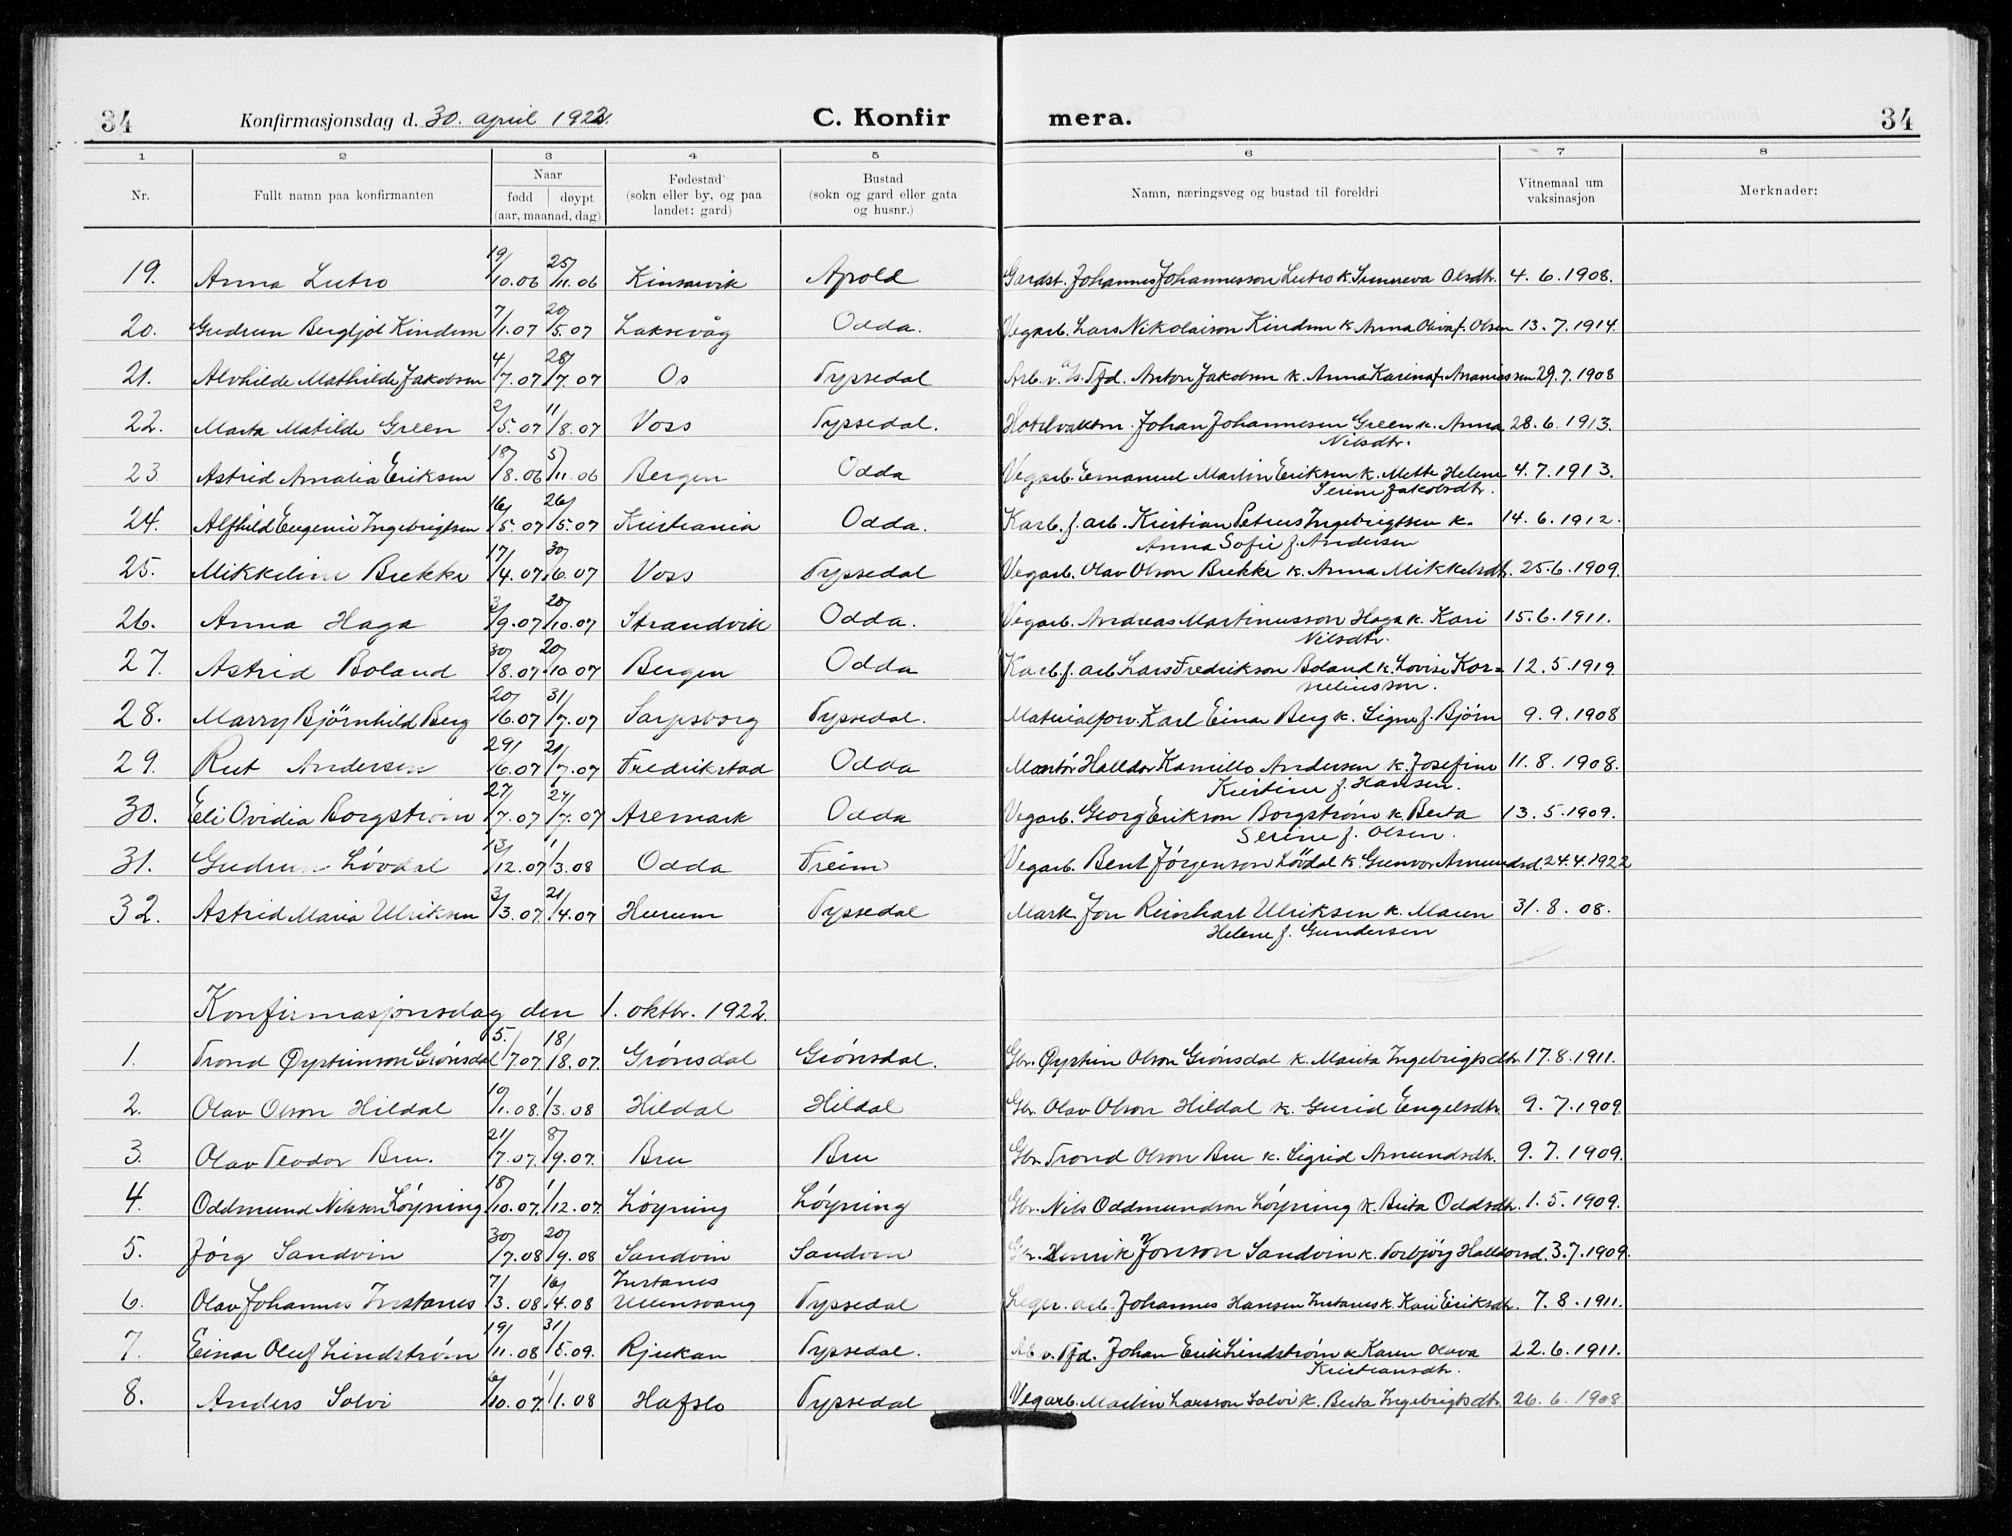 34 Konfirmasjonsdag d. 30. april 1922. C. Konfir mera. 34
1 2 3 4 5 6 7 8
Nr. Fullt namn paa konfirmanten Naar fødd døypt (aar, maanad, dag) Fødestad (sokn eller by, og paa landet: gard) Bustad (sokn og gard eller gata og husnr.) Namn, næringsveg og bustad til foreldri Vitnemaal um vaksinasjon Merknader:
19. Anna Lutro 19/10.06 25/11.06 Kinsarvik Apold Gardst. Johannes Johannesson Lutro k. Sunneva Olsdtr. 4.6.1908.
20. Gudrun Bergljot Kindem 7/1.07 20/5.07 Laksevåg Odda. Vegarb. Lars Nikolaison Kindem k. Anna Oliva f. Olsen 13.7.1914.
21. Alvhilde Mathilde Jakobsen 4/7.07 28/7.07 Os Tyssedal Arb. v. A/s. Tfd. Anton Jakobsen k. Anna Karina f. Ananiassen 29.7.1908
22. Marta Matilde Green 2/5.07 11/8.07 Voss Tyssedal. Hotelvaktm. Johan Johannesen Green k. Anna 28.6.1913.
Nilsdtr.
23 Astrid Amalia Eriksen 18/8.06 5/11.06 Bergen Odda Vegarb. Emanuel Martin Eriksen k. Mette Helene 4.7.1913.
Serine Jakobsdtr.
24. Alfhild Eugenie Ingebrigtsen 16/5.07 26/5.07 Kristiania Odda. Karb. f. arb. Kristian Petrus Ingebrigtsen k. 14.6.1912.
Anna Sofie f. Andersen
25. Mikkeline Brekke 17/4.07 30/6.07 Voss Tyssedal Vegarb. Olav Olson Brekke k. Anna Mikkelsdtr. 25.6.1909.
26. Anna Haga 3/9.07 20/10.07 Strandvik Odda. Vegarb. Andreas Martinusson Haga k. Kari 15.6.1911.
Nilsdtr.
27. Astrid Boland 30/8.07 20/10.07 Bergen Odda Karb. f. arb. Lars Fredrikson Boland k. Lovise Kor= 12.5.1919.
neliusson.
28. Marry Björnhild Berg 20/6.07 31/7.07 Sarpsborg Tyssedal. Materialforv. Karl Einar Berg k. Signe f. Bjørn 9.9.1908
29. Rut Andersen 29/6.07 21/7.07 Fredrikstad Odda Montör Halldor Kamillo Andersen k. Josefine 11.8.1908.
Kristine f. Hansen.
30. Eli Ovidia Borgstrøm 27/7.07 Aremark Odda Vegarb. Georg Erikson Borgstrøm k. Berta 13.5.1909.
Serine f. Olsen.
31. Gudrun Løvdal 13/12.07 1/3.08 Odda Freim Vegarb. Bent Jørgenson Løvdal k. Gunvor Amundsd. 24.4.1922
32. Astrid Maria Ulriksen 3/3.07. 21/4.07 Hurum Tyssedal Mark. Jon Reinhart Ulriksen k. Maren 31.8.08.
Helene f. Gundersen
Konfirmasjonsdag den 1. oktbr. 1922.
1. Trond Øysteinson Grønsdal 5./7.07. 18/8.07. Grønsdal Grønsdal. Gbr. Øystein Olson Grønsdal k. Marita Ingebrigtsdtr. 17.8.1911.
2. Olav Olson Hildal 10/1.08. 1/3.08 Hildal Hildal Gbr. Olav Olson Hildal k. Gurid Engelsdtr. 9.7.1909.
3. Olav Teodor Bru. 21/7.07. 8/9.07. Bru Bru Gbr. Trond Olson Bru k. Sigrid Amundsdtr. 9.7.1909.
4. Oddmund Nilsson Løyning 18/10.07. 1/12.07. Løyning Løyning Gbr. Nils Oddmundson Løyning k. Brita Oddsdtr. 1.5.1909.
5. Jørg Sandvin 30/7.08 20/9.08 Sandvin Sandvin Gbr. Henrik Jonson Sandvin k. Torbjørg Halldorsd. 3.7.1909.
Instanes
6. Olav Johannes Instanes 7/3.08 16/4.08 Ullensvang Tyssedal arb. Johannes Hansen Instanes k. Kari Eriksdtr. 7.8.1911.
7. Einar Oluf Lindstrøm 19/11.08 31/5.09. Rjukan Tyssedal. Ab. v. Tfd. Johan Erik Lindstrøm k. Karen Olava 22.6.1911.
Kristiansdtr.
8. Anders Solvi 6/10.07. 1/1.08 Hafslo Tyssedal Vegarb. Martin Larsson Solvi k. Berta Ingebrigtsdtr. 26.6.1908.